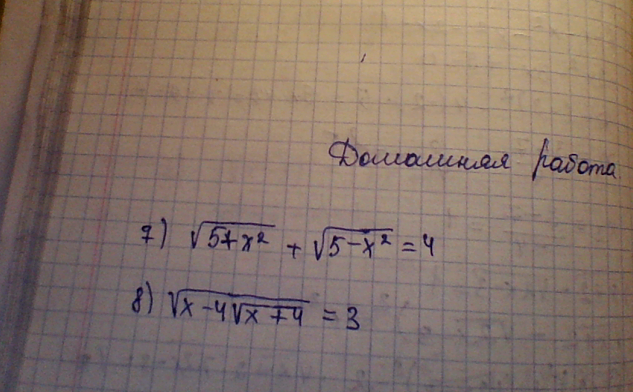 Домашняя работа
7) √(5+x²) + √(5-x²) = 4
8) √(x-4√(x+4)) = 3